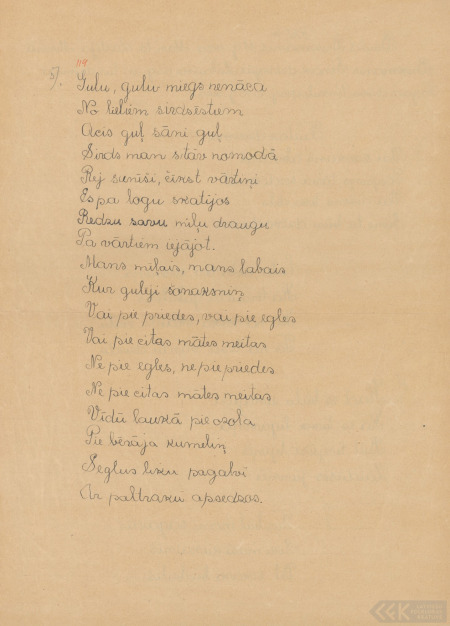 119
5). Gulu, gulu miegs nenāca
No lieliem sirdsēstiem
Acis guļ sāni guļ
Sirds man stāv nomodā
Rej sunīši, čirkst vārtiņi
Es pa logu skatijos
Redzu savu miļu draugu
Pa vārtiem iejājot.
Mans miļais, mans labais
Kur guleji šonaksniņ
Vai pie priedes, vai pie egles
Vai pie citas mātes meitas
Ne pie egles, ne pie priedes
Ne pie citas mātes meitas
Vidū laukā pie ozola
Pie bērāja kumeliņ
Seglus liku pagalvi
Ar paltraku apsedzos.